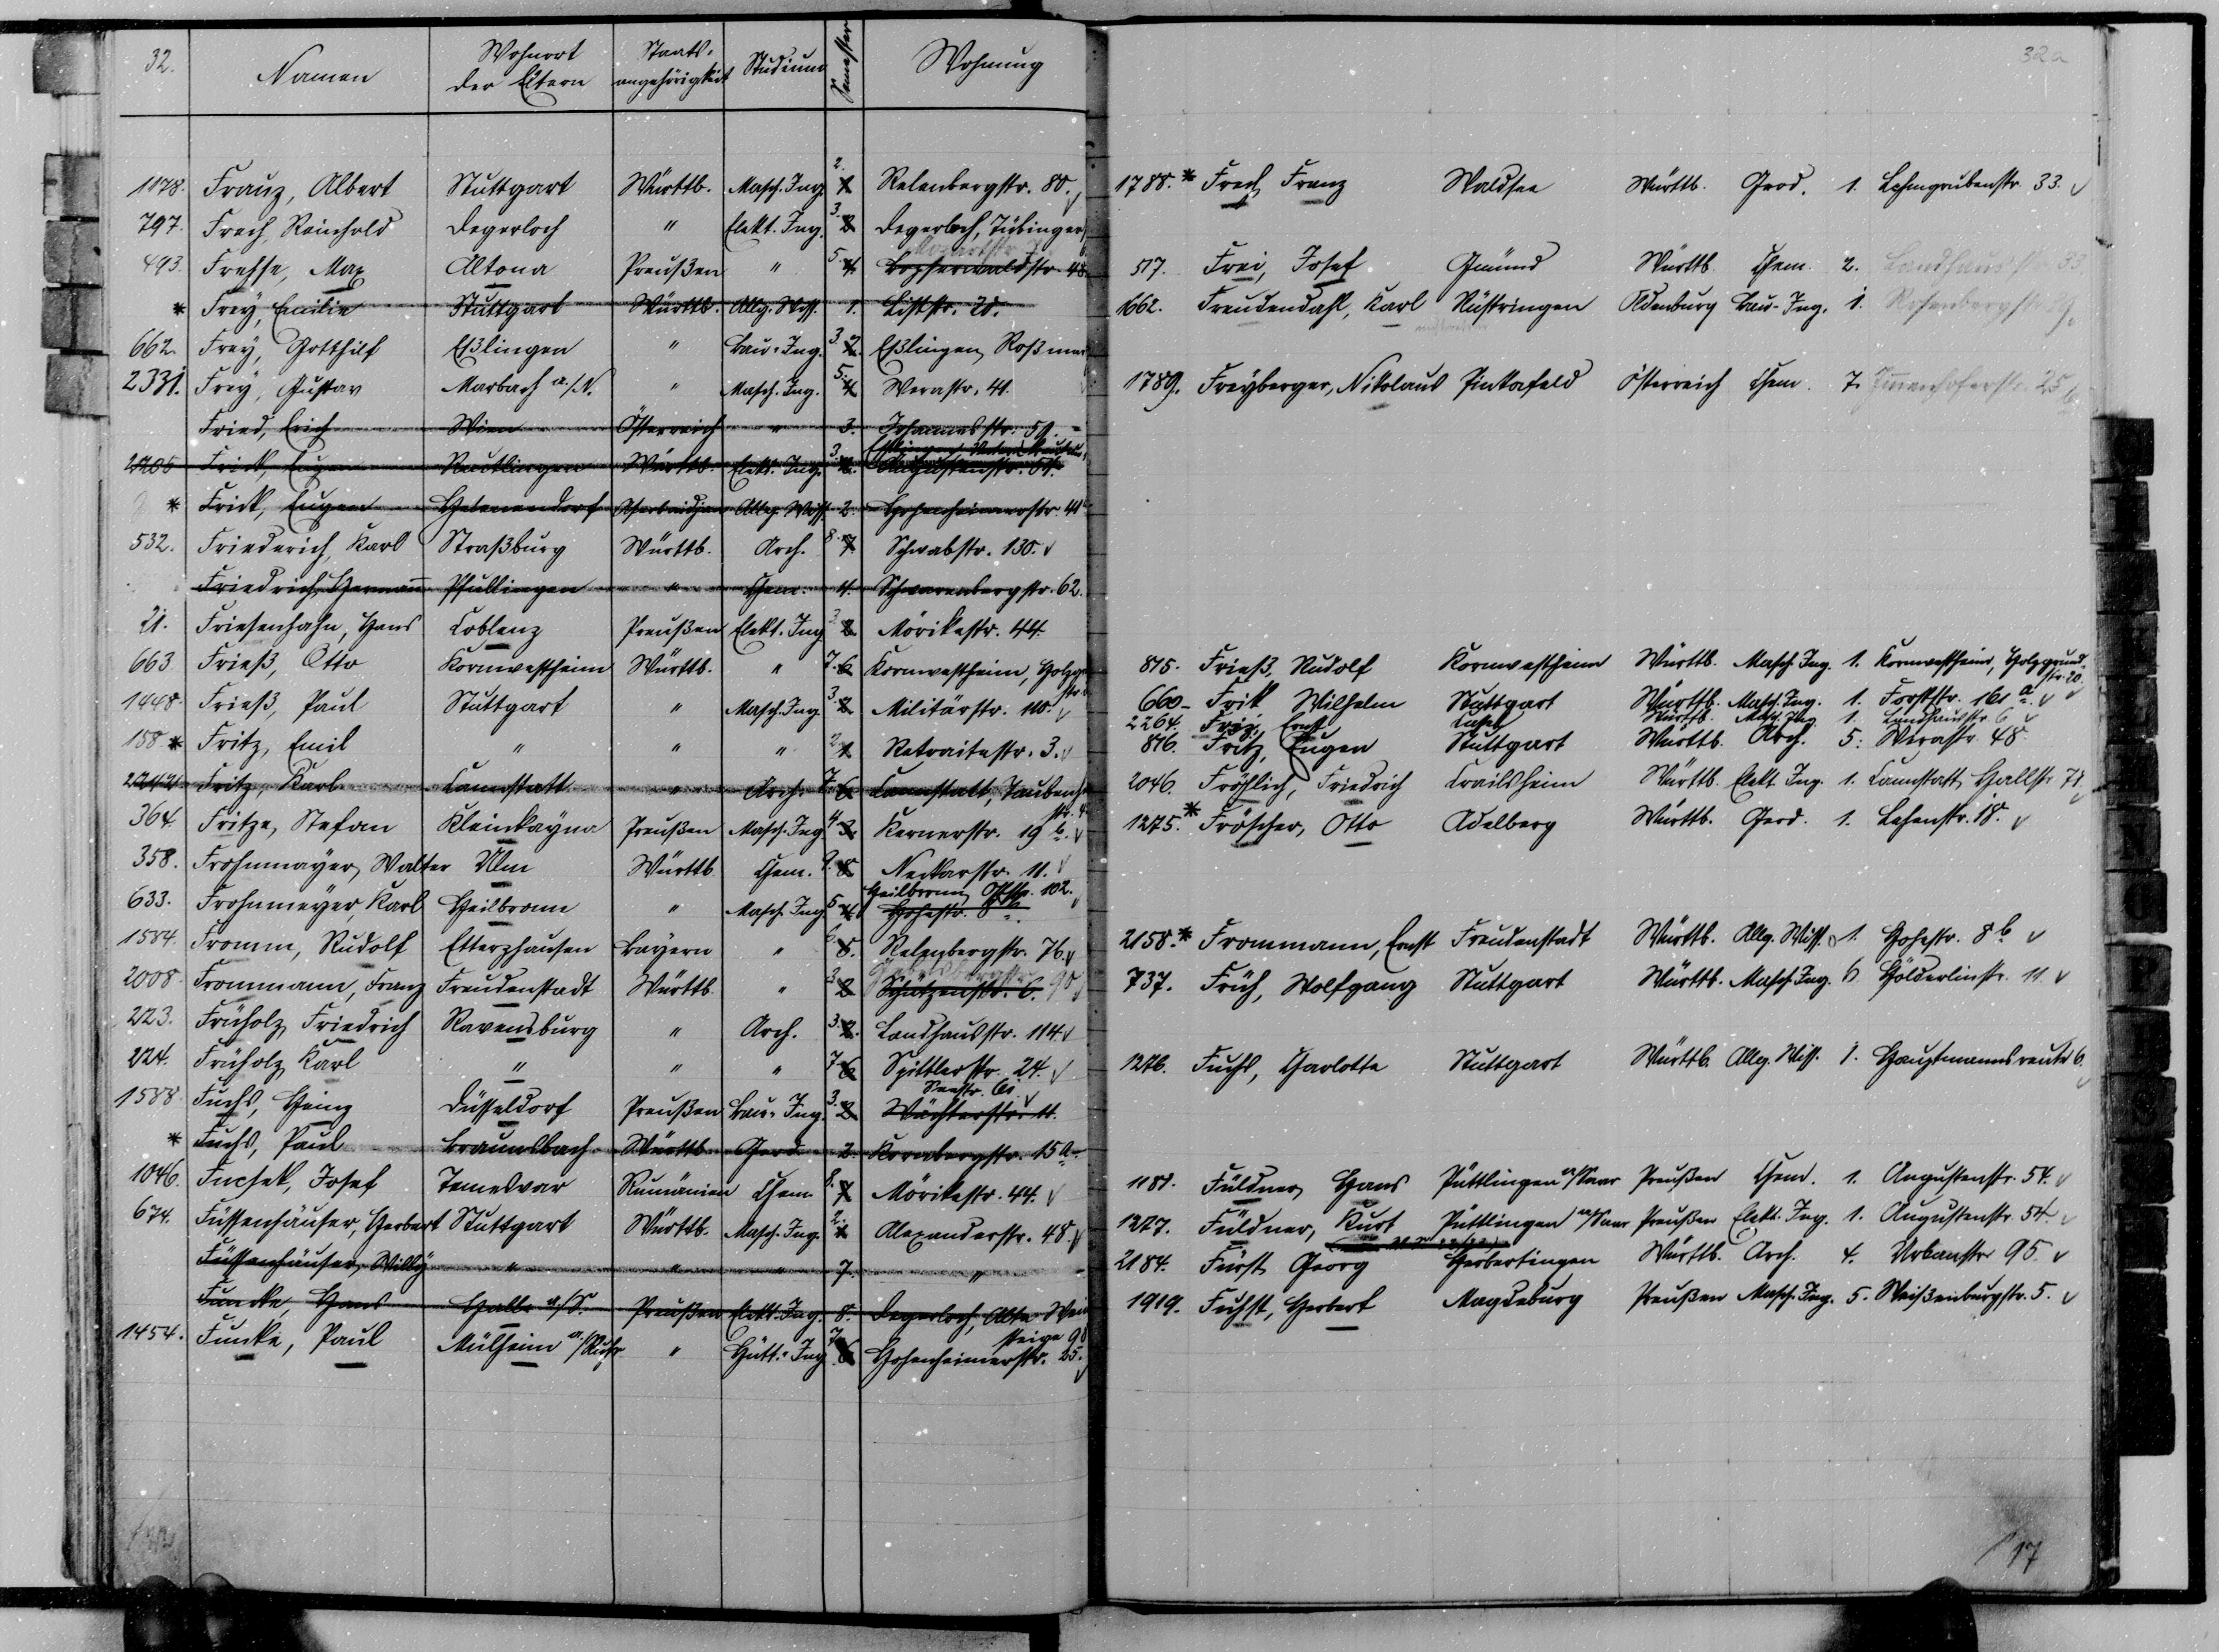 32. Namen Wohnort der Eltern Staats-angehörigkeit Studium Semester Wohnung
1178. Franz, Albert Stuttgart Württb. Masch. Ing. 2. 1. Relenbergstr. 80.
797. Frech, Reinhold Degerloch " Elekt. Ing. 3. 2. Degerloch, Tübinger
493. Frehse, Max Altona Preußen " 5. 4. Bopserwaldstr. 48
* Frey, Emilie Stuttgart Württb. Allg. Wiss. 1. Liststr. 28.
662. Frey, Gotthilf Eßlingen " Bau-Ing. 3. 2. Eßlingen, Roßmar
2331. Frey, Gustav Marbach a./N. " Masch. Ing. 5. 4. Werastr. 41.
Fried, Erich Wien Österreich " 3. Johannesstr. 59.
2205 Frick, Eugen Reutlingen Württb. Elekt. Ing. 3. 2. Augustenstr. 54.
* Frick, Eugen Helenendorf Aserbeidjan Allg. Wiss. 2. Hohenheimerstr. 41
532. Friederich, Karl Straßburg Württb. Arch. 8. 7. Schwabstr. 130.
Friedrich, Hermann Pfullingen " Chem. 4. Schwarenbergstr. 62.
21. Friesenhahn, Hans Coblenz Preußen Elekt. Ing. 3. 2. Mörikestr. 44.
663. Frieß, Otto Kornwestheim Württb. " 7. 6. Kornwestheim, Holzg
str.
1448. Frieß, Paul Stuttgart " Masch. Ing. 3. 2. Militärstr. 110.
158. * Fritz, Emil " " " 2. 1. Retraitestr. 3.
2244 Fritz, Karl Cannstatt " Arch. 7. 6. Cannstatt, Taubenh
str. 4
364. Fritze, Stefan Kleinkayna Preußen Masch. Ing. 4. 3. Kernerstr. 19 b.
358. Frohnmayer, Walter Ulm Württb. Chem. 9. 8. Neckarstr. 11.
Heilbronn, Oststr. 102.
633. Frohnmeyer, Karl Heilbronn " Masch. Ing. 5. 4. Hohestr.
1584. Fromm, Rudolf Etterzhausen Bayern " 6. 5. Relenbergstr. 76.
2008. Frommann, Franz Freudenstadt Württb. " 3. 2. Schützenstr. 6. 90
223. Früholz, Friedrich Ravensburg " Arch. 3. 2. Landhausstr. 114.
224. Früholz, Karl " " " 7. 6. Spittlerstr. 24.
Seestr. 61.
1588. Fuchs, Heinz Düsseldorf Preußen Bau-Ing. 3. 2. Wächterstr. 11.
* Fuchs, Paul Braunsbach Württb. Geod. 2. Kornbergstr. 15a.
1046. Fucsek, Josef Temesvar Rumänien Chem. 8. 7. Mörikestr. 44.
674. Füssenhäuser, Herbert Stuttgart Württb. Masch. Ing. 2. 1. Alexanderstr. 48.
Füssenhäuser, Willy " " " 7. "
Funcke, Hans Halle a./S. Preußen Elekt. Ing. 8. Degerloch, Alte Wein
steige 98
1454. Funke, Paul Mülheim a./Ruhr " Hütt.-Ing. 7. 6. Hohenheimerstr. 25.
32a
1788. * Frech, Franz Waldsee Württb. Geod. 1. Lehmgrubenstr. 33.
517. Frei, Josef Gmünd Württb. Chem. 2. Landhausstr. 53
1662. Freudendahl, Karl Rüstringen Oldenburg Bau-Ing. 1. Rosenbergstr.
1789. Freyberger, Nikolaus Pinkafeld Österreich Chem. 7. Immenhoferstr. 25
815. Frieß, Rudolf Kornwestheim Württb. Masch. Ing. 1. Kornwestheim, Holzgrund-
str. 20.
660. Frik Wilhelm Stuttgart Württb. Masch. Ing. 1. Forststr. 161 a.
2264. Friz, Ernst Württb. Masch. Ing. 1. Landhausstr. 6
816. Fritz, Eugen Stuttgart Württb. Arch. 5. Werastr. 48
2046. Fröhlich, Friedrich Crailsheim Württb. Elekt. Ing. 1. Cannstatt, Hallstr. 71
1275. * Fröscher, Otto Adelberg Württb. Geod. 1. Lehenstr. 18.
2158. * Frommann, Ernst Freudenstadt Württb. Allg. Wiss. 1. Hohestr. 8 b
737. Früh, Wolfgang Stuttgart Württb. Masch. Ing. 6 Hölderlinstr. 11
1276. Fuchs, Charlotte Stuttgart Württb. Allg. Wiss. 1. Hauptmannsreute 6.
1181. Füldner, Hans Püttlingen a/Saar Preußen Chem. 1. Augustenstr. 54.
1277. Füldner, Kurt Püttlingen a/Saar Preußen Elekt. Ing. 1. Augustenstr. 54.
2184. Fürst, Georg Herbertingen Württb. Arch. 4. Urbanstr. 95.
1919. Fuhst, Herbert Magdeburg Preußen Masch. Ing. 5. Weißenburgstr. 5.
17